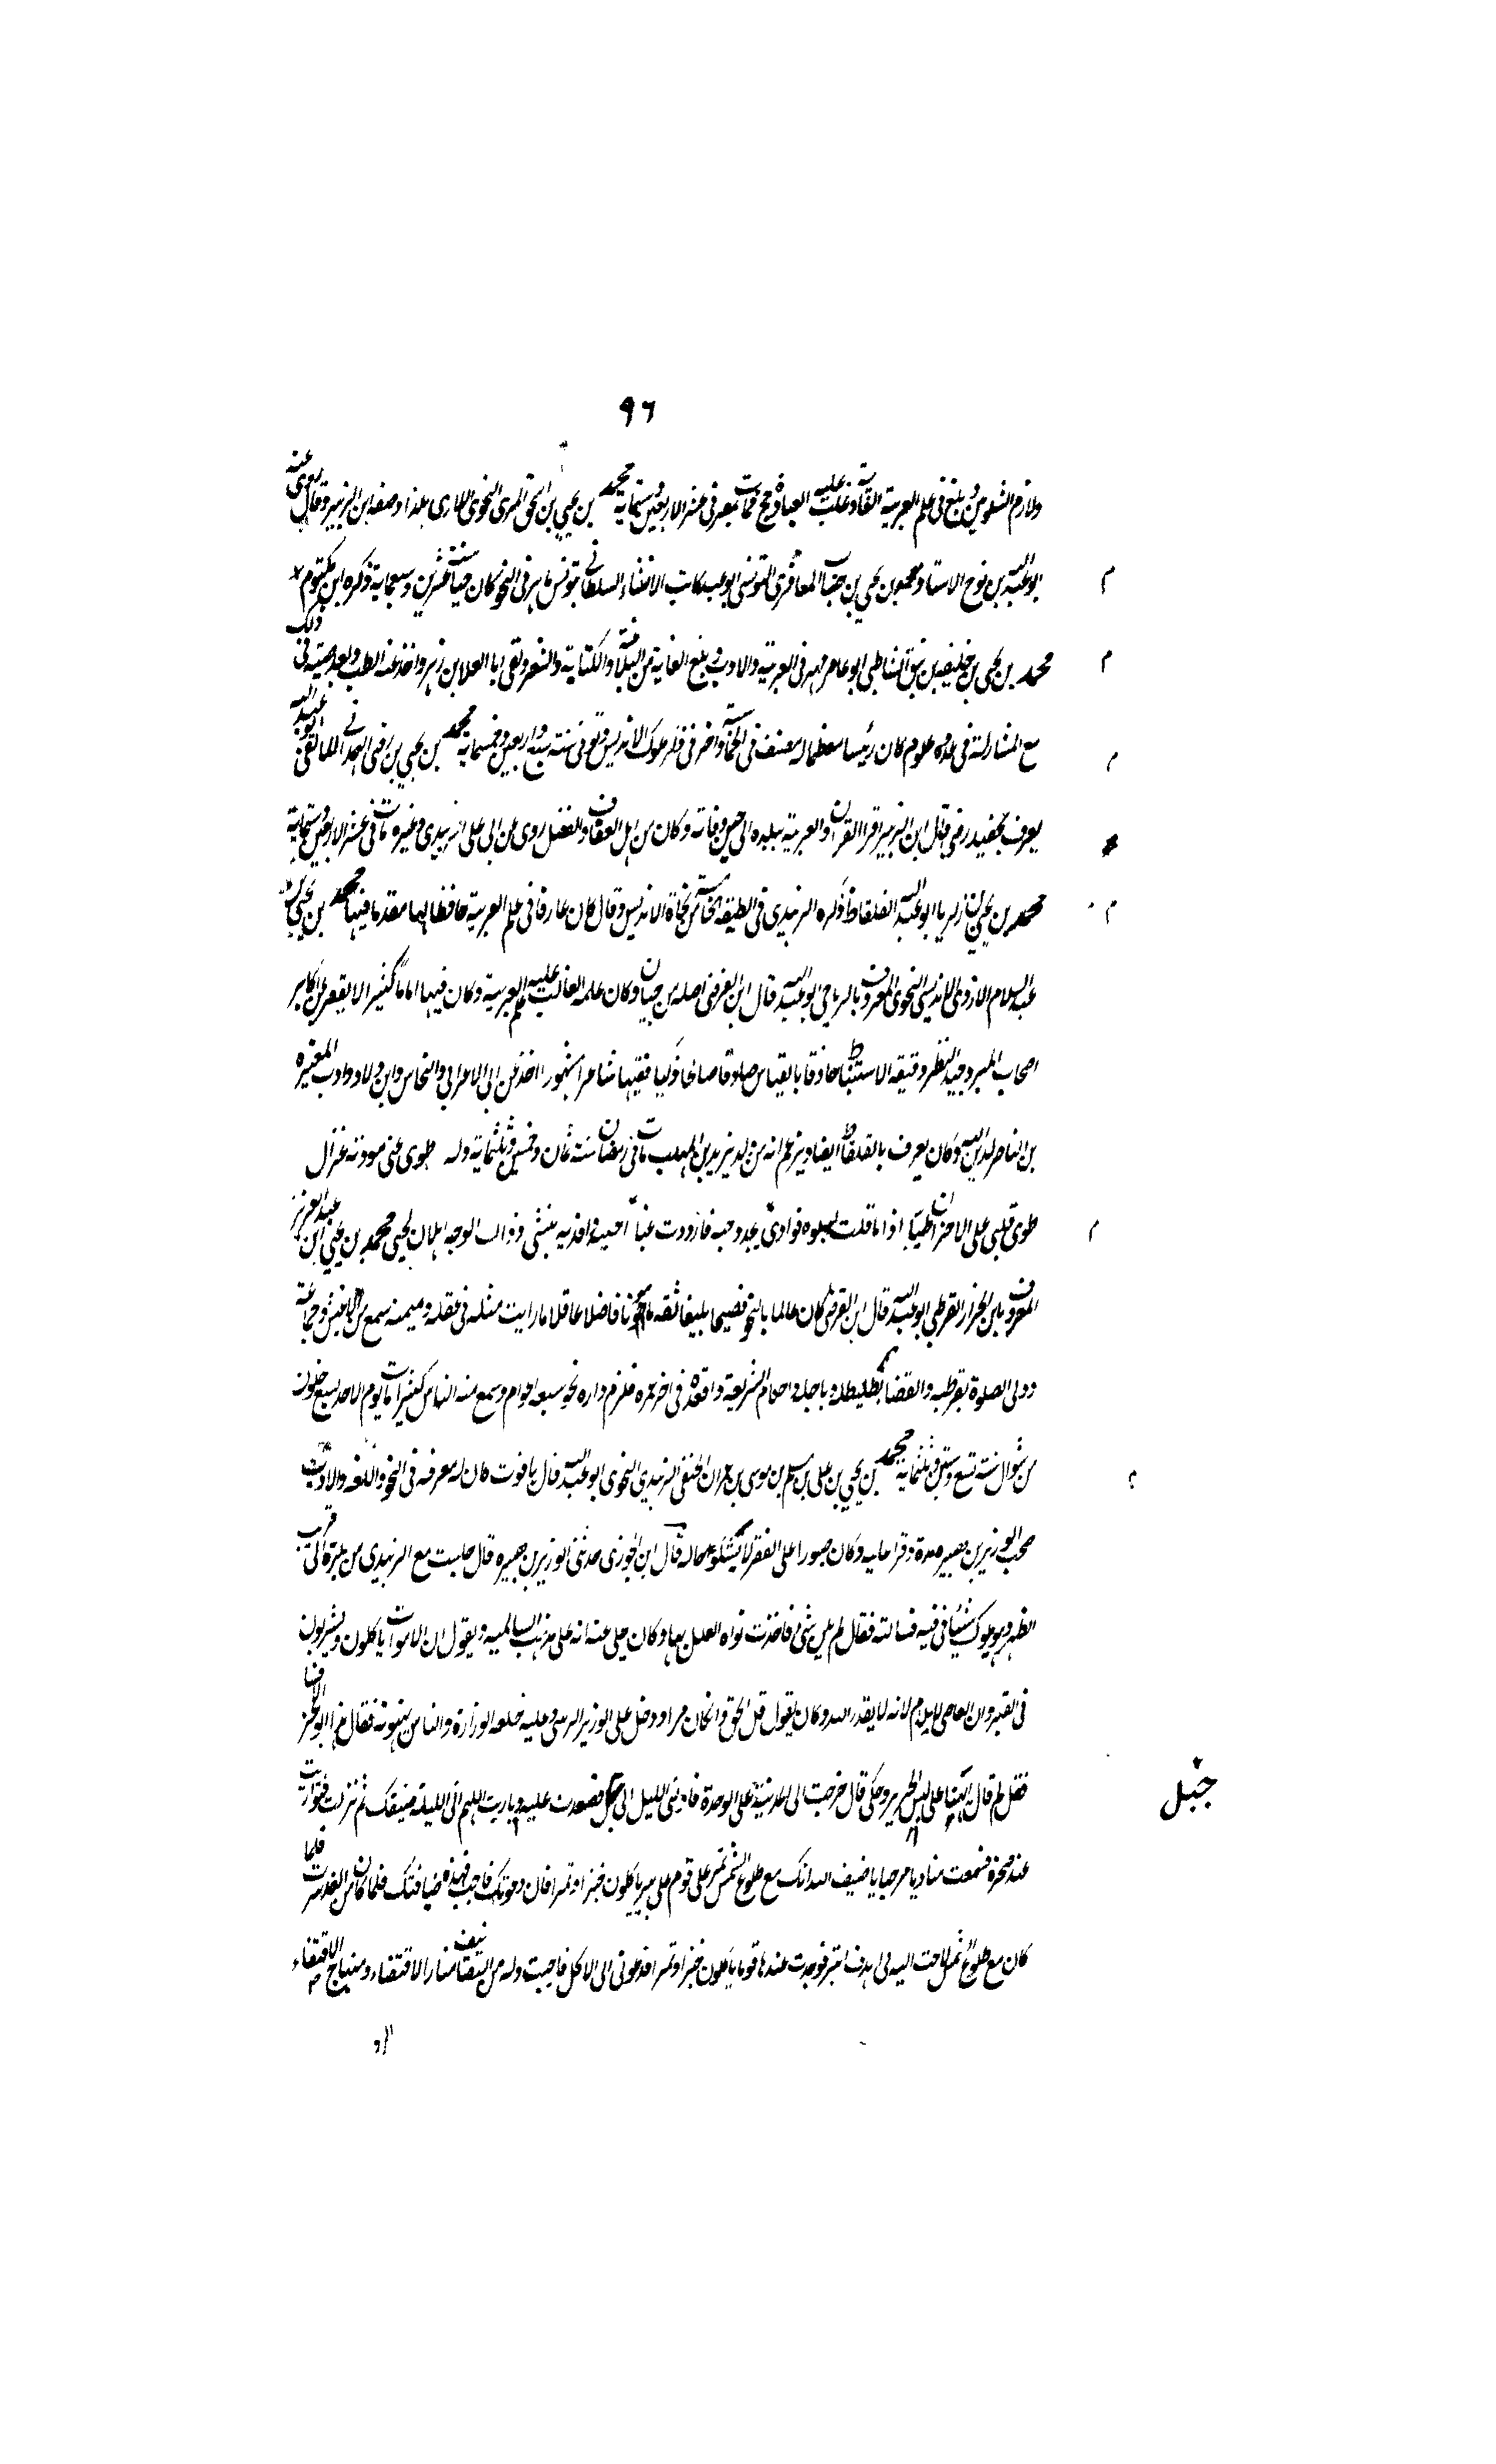 ٩٦
ولازم الشلوبين وبلغ فى علم العربية الغاية وغلبت عليه العبادة وحج فمات بمصر فى عشر الاربعين وستمائة محمد بن يحيي بن اسحق المرى النحوى كذا وصفه ابن الزبير وقال روى عنه
ابو عبد الله بن نوح الاستاذ محمد بن يحيي بن المعافرى التونسى ابو عبد الله كاتب الانشاء السلطانى بتونس ماهر فى النحو كان حيا سنة عشرين وسبعماية ذكره ابن مكتوم
محمد بن يحيى بن خليفة بن ينق الشاطبى ابو عامر مهر فى العربية والادب وبلغ الغاية من البلاغة والكتابة والشعر ولقى ابا العلا بن زهر واخذ عنه الطب وبعد صيته فى ذلك
مع المشاركة فى عدة علوم كان رئيسا معظما له مصنف فى الحماسة واخر فى ملوك الاندلس توفى سنة سبع واربعين وخمسماية محمد بن يحيي بن رضى المالقى ابو عبد الله
يعرف بحفيد رضى قال ابن الزبير اقرا القران والعربية ببلده الى حين وفاته وكان من اهل العفاف والفضل روى عن ابى على الرندى وغيره مات فى عشر الاربعين وستماية
محمد بن يحيى بن زكريا ابو عبد الله القلفاط ذكره الزبيدى فى الطبقة الخامسة من نحاة الاندلس وقال كان عارفا فى علم العربية حافظا لها مقدما فيها محمد بن يحيى بن
عبد السلام الازدى الاندلسى النحوى المعروف بالرباحى ابو عبد الله قال ابن الفرضى اصله من جيان وكان علمه الغالب عليه علم العربية وكان فيها اماما كبير الا يقصر عن اكابر
اصحاب المبرد جيد النظر دقيق الاستنباط حاذقا بالقياس صدوقا صالحا ذكيا فقيها شاعرا مشهورا اخذ عن ابن الاعرابى والنحاس وابن ولاد وادب المغيره
بن الناصر لدين الله وكان يعرف بالقلفاط ايضا ويزعم انه من ولد يزيد بن المهلب مات فى رمضان سنة ثمان وخمسين وثلثماية وله طوى عنى مودته غزال
طوى قلبى على الاحزان طيا اذا ما قلت يسلوه فوادى يجدد حبه فازددت غيا احييه وافديه بنفسى وذاك الوجه اهلا ان يحيى محمد بن يحيى ابن عبد العزيز
المعروف بابن الخراز القرطبى ابو عبد الله قال ابن الفرضى كان عالما بالنحو فصيحا بليغا ثقة مامونا فاضلا عاقلا ما رايت مثله فى عقله وسمته سمع من وجماعة
وولى الصلوة بقرطبة والقضا بطليطلة وباجة واحكام الشريعة واقعد فى اخر عمره فلزم داره نحو سبعة اعوام وسمع منه الناس كثيرا مات يوم الاحد لسبع خلون
من شوال سنة تسع وستين وثلثماية محمد بن يحيى بن على بن مسلم بن موسى بن عمران الحنفى الزبيدي النحوى ابو عبد الله قال ياقوت كان له معرفة فى النحو واللغة والادب
صحب الوزير بن هبيرة مدة وقرا عليه وكان صبورا على الفقر لا يشكو حاله قال ابن الجوزى حدثنى الوزير بن هبيرة قال جلست مع الزبيدى من بكرة الى قريب
الظهر وهو يلوك شيئا فى فيه فسالته فقال لم يكن لى شئ فاخذت نواة اتعلل بها وكان حكى عنه انه على مذهب السالمية ويقول ان الاموات ياكلون ويشربون
فى القبر وان العاصى لا يلام لانه بقدر الله وكان يقول قل الحق وان كان مرا ودخل على الوزير الزينبى وعليه خلعة الوزارة والناس يهنونه فقال
فقيل لم قال على لبس الحرير وحكى قال خرجت الى المدينة على الوحدة فاوينى الليل الى جبل فصعدت عليه وناديت اللهم انى الليلة ضيفك ثم نزلت فتواريت
عند صخرة فسمعت مناديا مرحبا يا ضيف الله انك مع طلوع الشمس تمر على قوم على بير ياكلون خبزا وتمرا فان دعوك فاجب فهذه ضيافتك فلما كان من الغد سرت فلما
كان مع طلوع الشمس لاحت الى اهداف بير فوجدت عندها قوما ياكلون خبزا وتمرا فدعونى الى الاكل فاجبت وله من التصانيف منار الاقتضاء ومنهاج الاقتفاء
جبل